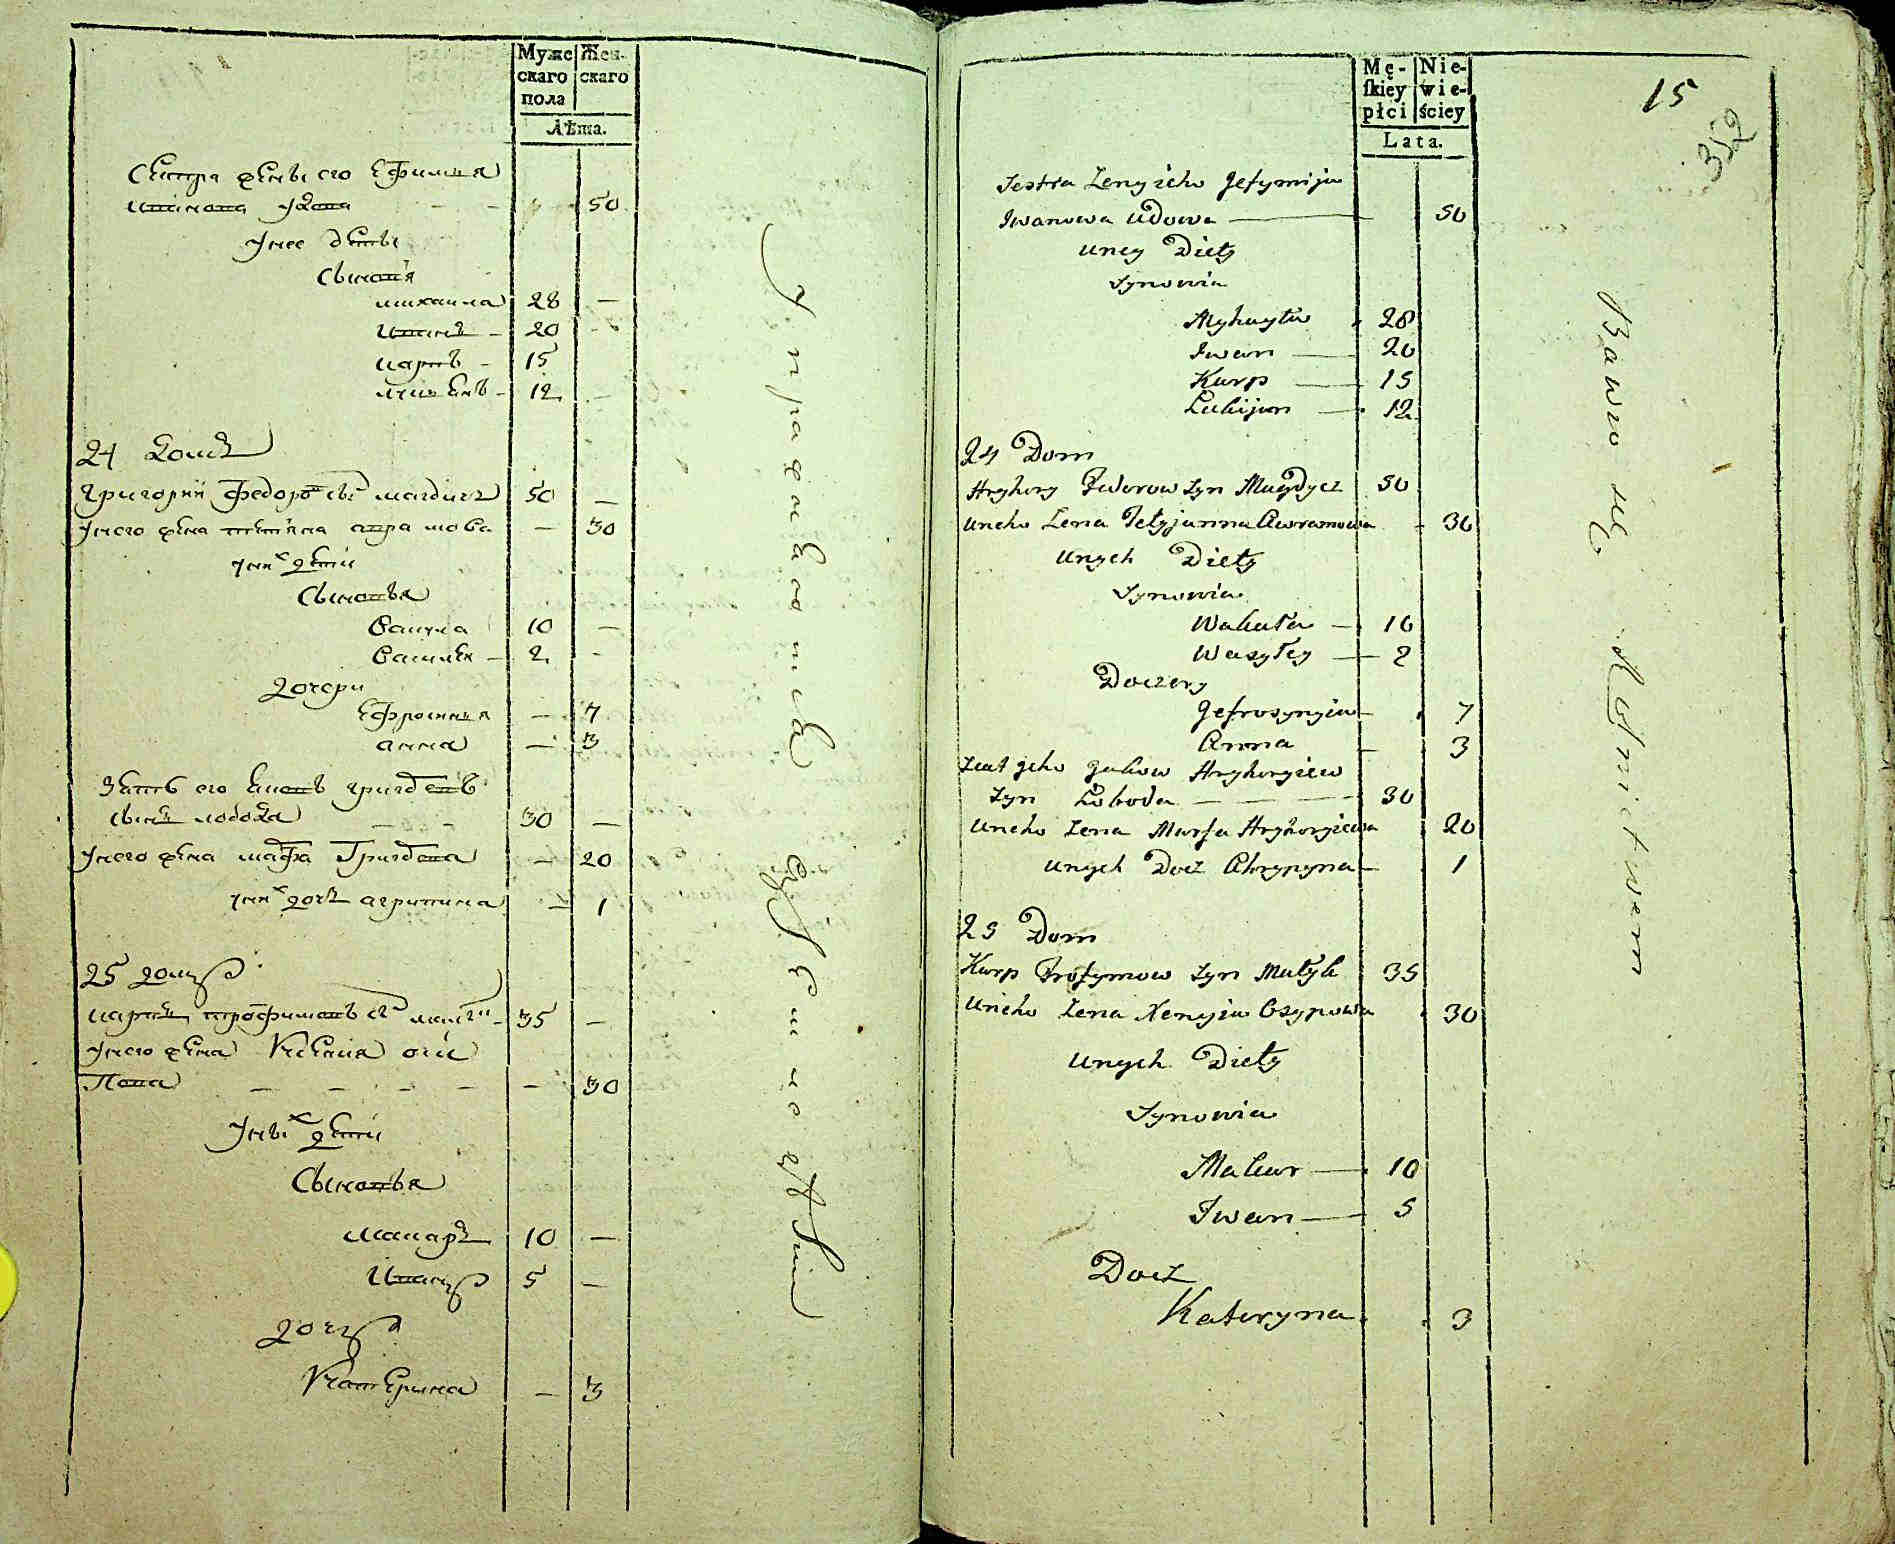 Муже
скаго
пола
Жен-
скаго
Лѣта.
Сестра жены его Ефимия
иванова удова 50
у нее дети
Сыновя
михаила 28 —
иванъ — 20
карпъ — 15
12 —
24 домъ
Григорий Федоровъ сынъ 50 —
у него жена татіяна аврамова — 30
у них дети
Сыновья
Вакула 10 —
Василей — 2 -
дочери
Ефросиния — 7
анна — 3
Зять его яковъ григориевъ
сынъ лобода 30 —
у него жена марфа Григориева — 20
у них дочь агрипина — 1
25 домъ
карпъ трофимовъ сынъ 35 —
у него жена Ксения оси
пова — — — — — 30
у них дети
Сыновья
макаръ 10 —
Иванъ 5 —
дочь
Катерина — 3
Mę-
skiey
płci
Nie-
wie-
ściey
Lata.
15
352
Sestra Zeny ieho Jefymija
Iwanowa udowa — 50
uney Diety
Synowia
Myhayła 28
Iwan — 20
Karp — 15
Łukijan — 12
24 Dom
Hryhory Fedorow Syn 50
uneho Zena Tetyjanna Awramowa 30
unych Diety
Synowia
Wakuła — 10
Wasyley — 2
Doczery
Jefrosynyia — 7
Anna — 3
Zeat jeho Jakow Hryhoryiew
Syn Łoboda — — — 30
uneho Zena Marfa Hryhoryiewa 20
unych Docz Ahrypyna — 1
25 Dom
Karp Trofymow Syn 35
uneho Zena Xenyia Osypowa 30
unych Diety
Synowia
Makar — 10
Iwan — 5
Docz
Kateryna 3